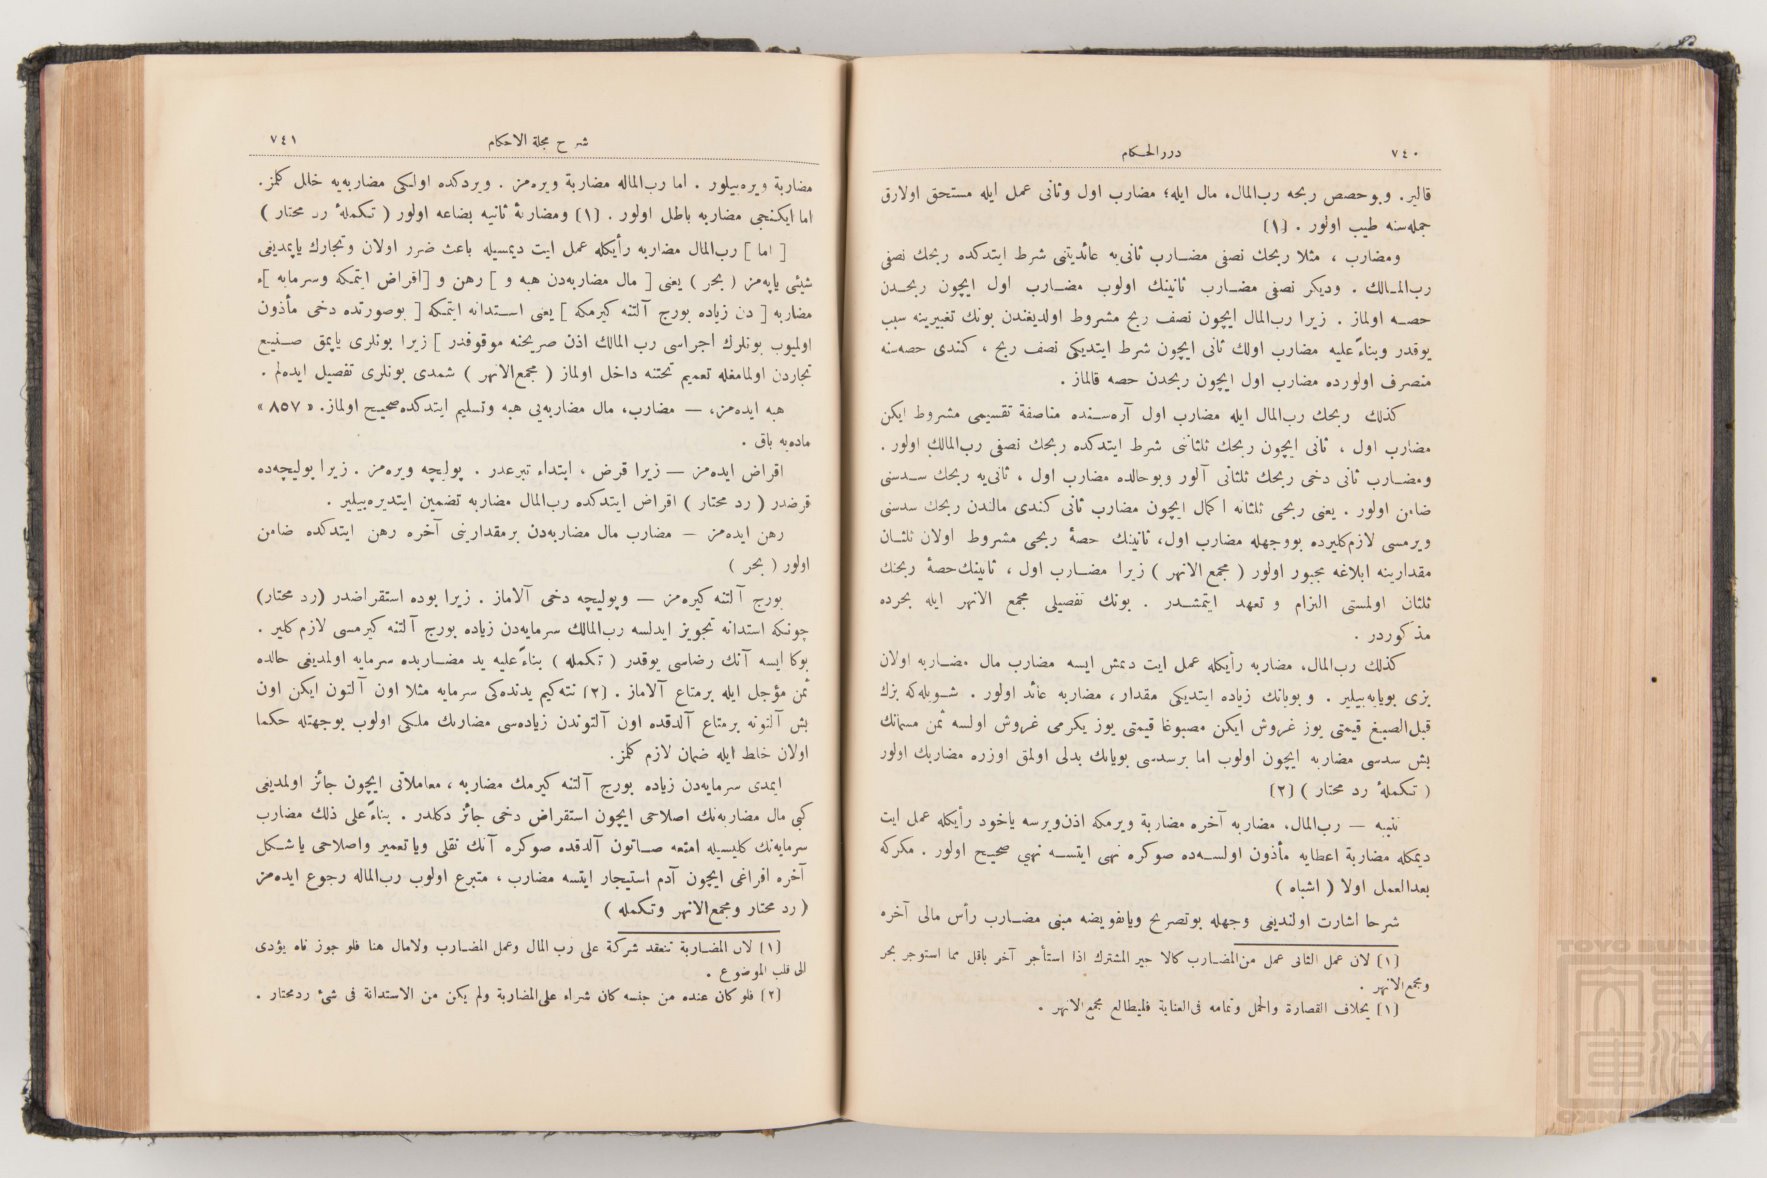 ٧٤٠ دررالحكام
قالير. وبوحصص ربحه رب‌المال، مال ايله؛ مضارب اول وثانى عمل ايله مستحق اولارق
جمله‌سنه طيب اولور . [١]
ومضارب ، مثلا ربحك نصفى مضـارب ثانى‌يه عائديتنى شرط ايتدكده ربحك نصفى
رب‌المـالك . وديكر نصفى مضـارب ثانينك اولوب مضـارب اول ايچون ربحـدن
حصـه اولماز . زيرا رب‌المال ايچون نصف ربح مشروط اولديغندن بونك تغييرينه سبب
يوقدر وبناءً عليه مضارب اولك ثانى ايچون شرط ايتديكى نصف ربح ، كندى حصه‌سنه
منصرف اولورده مضارب اول ايچون ربحدن حصه قالماز .
كذلك ربحك رب‌المال ايله مضارب اول آره‌سـنده مناصفة تقسيمى مشروط ايكن
مضارب اول ، ثانى ايچون ربحك ثلثاننى شرط ايتدكده ربحك نصفى رب‌المالك اولور .
ومضـارب ثانى دخى ربحك ثلثانى آلور وبوحالده مضارب اول ، ثانى‌يه ربحك سـدسنى
ضامن اولور . يعنى ربحى ثلثانه اكمال ايچون مضارب ثانى كندى مالندن ربحك سدسنى
ويرمسى لازم‌كليرده بووجهله مضارب اول، ثانينك حصهٔ ربحى مشروط اولان ثلثـان
مقدارينه ابلاغه مجبور اولور ( مجمع الانهر ) زيرا مضـارب اول ، ثانينك‌حصهٔ ربحنك
ثلثان اولمسنى التزام و تعهد ايتمشـدر . بونك تفصيلى مجمع الانهر ايله بحرده
مذكوردر .
كذلك رب‌المال، مضاربه رأيكله عمل ايت ديمش ايسه مضارب مال مضـاربه اولان
بزى بويايه‌بيلير . وبويانك زياده ايتديكى مقدار، مضاربه عائد اولور . شـويله‌كه بزك
قبل‌الصبغ قيمتى يوز غروش ايكن مصبوغا قيمتى يوز يكرمى غروش اولسه ثمن مسمانك
بش سدسى مضاربه ايچون اولوب اما برسدسى بويانك بدلى اولمق اوزره مضاربك اولور
( تكملهٔ رد محتار ) [٢]
تنبيه — رب‌المال، مضاربه آخره مضاربة ويرمكه اذن‌ويرسه ياخود رأيكله عمل ايت
ديمكله مضاربة اعطايه مأذون اولسـه‌ده صوكره نهى ايتسـه نهيى صحيح اولور . مكركه
بعدالعمل اولا ( اشباه )
شرحا اشارت اولنديغى وجهله بوتصريح وياتفويضه مبنى مضـارب رأس مالى آخره
[١] لان عمل الثانى عمل من‌المضـارب كالا جير المشترك اذا استأجر آخر باقل مما استوجر بحر
ومجمع‌الانهر .
[١] بخلاف القصارة والحمل وتمامه فى‌العناية فليطالع مجمع‌الانهر .
شرح مجلة الاحكام ٧٤١
مضاربة ويره‌بيلور . اما رب‌الماله مضاربة ويره‌مز . ويردكده اولكى مضاربه‌يه خلل كلمز.
اما ايكنجى مضاربه باطل اولور . [١] ومضاربهٔ ثانيه بضاعه اولور ( تكملهٔ رد محتار )
[ اما ] رب‌المال مضاربه رأيكله عمل ايت ديمسيله باعث ضرر اولان وتجارك ياپمديغى
شيئى ياپه‌مز ( بحر ) يعنى [ مال مضاربه‌دن هبه و ] رهن و [اقراض ايتمكه وسرمايه ]ء
مضاربه [ دن زياده بورج آلتنه كيرمكه ] يعنى اسـتدانه ايتمكه [ بوصورتده دخى مأذون
اولميوب بونلرك اجراسى رب المالك اذن صريحنه موقوفدر ] زيرا بونلرى ياپمق صـنيع
تجاردن اولمامغله تعميم تحتنه داخل اولماز ( مجمع‌الانهر ) شمدى بونلرى تفصيل ايده‌لم .
هبه ايده‌مز، — مضارب، مال مضاربه‌يى هبه وتسليم ايتدكده‌صحيح اولماز. « ٨٥٧ »
ماده‌يه باق .
اقراض ايده‌مز — زيرا قرض ، ابتداء تبرعدر . پوليچه ويره‌مز . زيرا پوليچه‌ده
قرضدر ( رد محتار ) اقراض ايتدكده رب‌المال مضاربه تضمين ايتديره‌بيلير .
رهن ايده‌مز — مضارب مال مضاربه‌دن برمقدارينى آخره رهن ايتدكده ضامن
اولور ( بحر )
بورج آلتنه كيره‌مز — وپوليچه دخى آلاماز . زيرا بوده استقراضدر (رد محتار)
چونكه استدانه تجويز ايدلسه رب‌المالك سرمايه‌دن زياده بورج آلتنه كيرمسى لازم كلير .
بوكا ايسه آنك رضاسى يوقدر ( تكمله ) بناءً عليه يد مضـاربده سرمايه اولمديغى حالده
ثمن مؤجل ايله برمتاع آلاماز . [٢] نته‌كيم يدنده‌كى سرمايه مثلا اون آلتون ايكن اون
بش آلتونه برمتاع آلدقده اون آلتوندن زياده‌سى مضاربك ملكى اولوب بوجهتله حكما
اولان خلط ايله ضمان لازم كلمز.
ايمدى سرمايه‌دن زياده بورج آلتنه كيرمك مضاربه ، معاملاتى ايچون جائز اولمديغى
كبى مال مضاربه‌نك اصلاحى ايچون استقراض دخى جائز دكلدر . بناءً على ذلك مضارب
سرمايه‌نك كليسيله امتعه صـاتون آلدقده صوكره آنك نقلى وياتعمير واصلاحى ياشـكل
آخره افراغى ايچون آدم استيجار ايتسه مضارب ، متبرع اولوب رب‌الماله رجوع ايده‌مز
( رد محتار ومجمع‌الانهر وتكمله )
[١] لان المضـاربة تنعقد شركة على رب المال وعمل المضـارب ولامال هنا فلو جوز ناه يؤدى
الى قلب الموضوع .
[٢] فلو كان عنده من جنسه كان شراء على‌المضاربة ولم يكن من الاستدانة فى شئ ردمحتار .
TOYO BUNKO